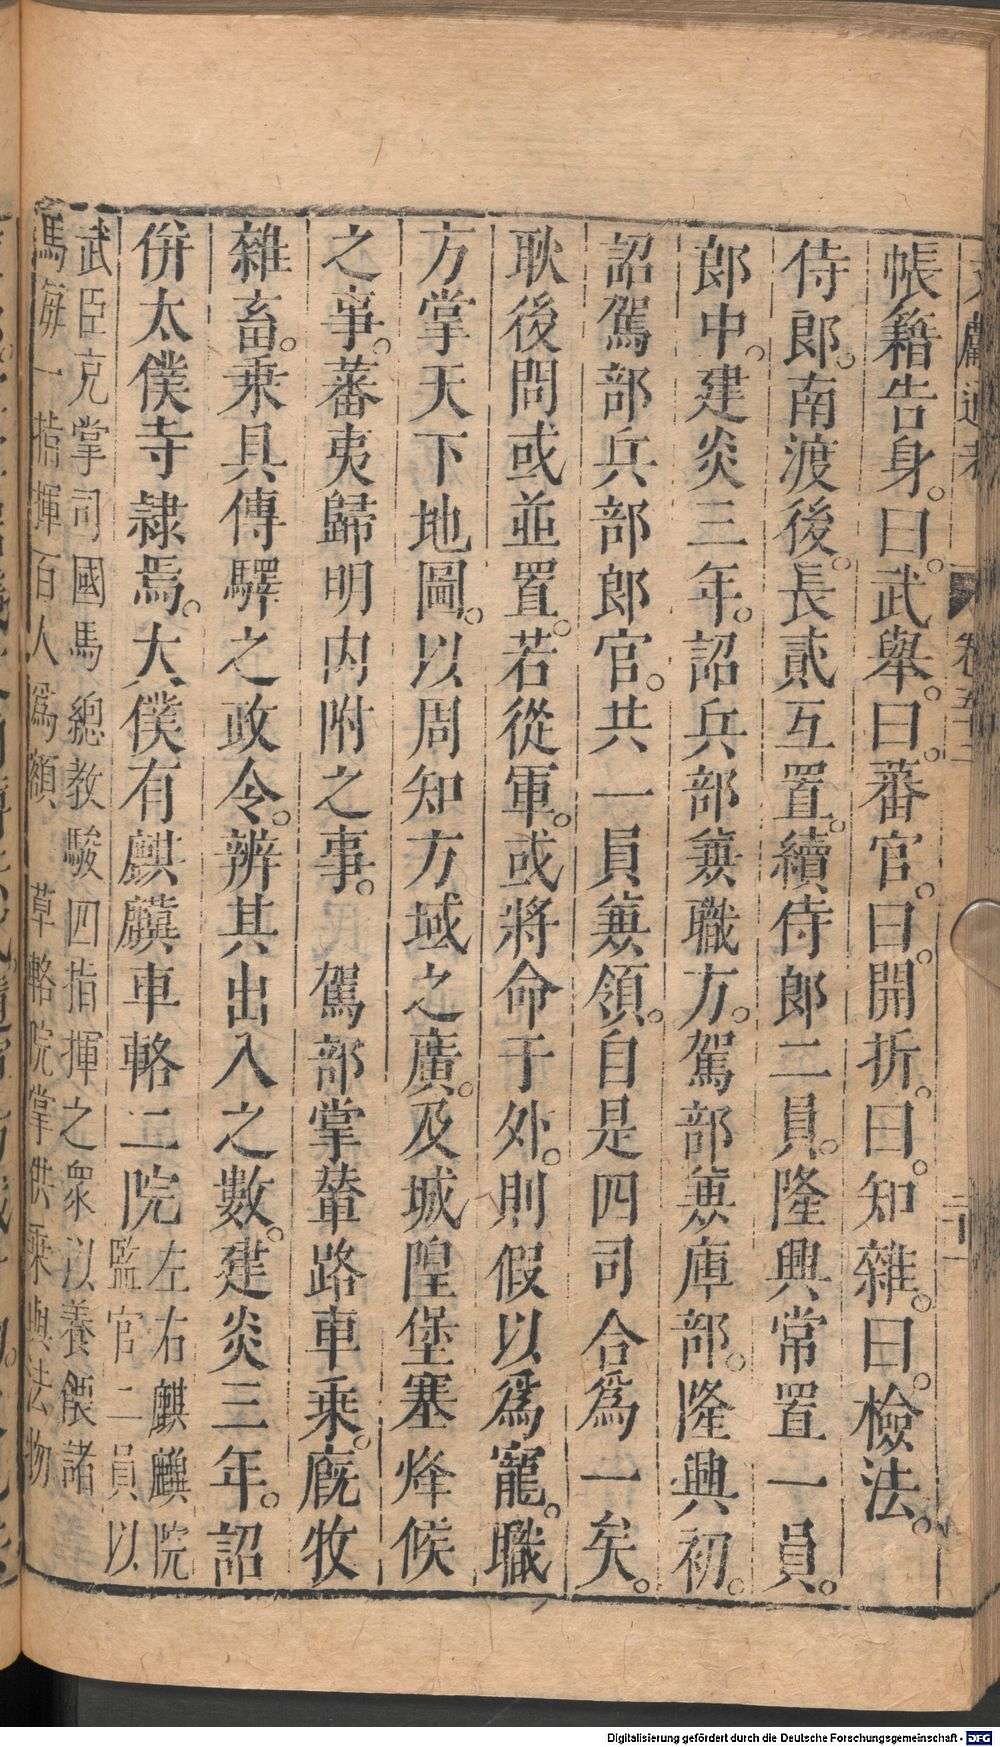 文獻通考 卷五十二 二十一
帳籍告身。曰。武舉。曰。蕃官。曰。開折。曰。知雜。曰。檢法。
侍郎。南渡後。長貳互置。續侍郎二員。隆興常置一員。
郎中。建炎三年。詔兵部兼職方。駕部兼庫部。隆興初。
詔駕部兵部郎官。共一員兼領。自是四司合爲一矣。
耿後問或並置。若從軍。或將命于外。則假以爲寵。職
方掌天下地圖。以周知方域之廣。及城隍堡塞烽候
之事。蕃夷歸明内附之事。 駕部掌輦路車乘。廐牧
雜畜。乘具傳驛之政令。辨其出入之數。建炎三年。詔
併太僕寺隸焉。大僕有麒麟車輅二院左右麒麟院
監官二員以
武臣克掌司國馬總教駿四指揮之衆以養餵諸
馬海一指揮百人爲額 草輅院掌供乘輿法物
Digitalisierung gefördert durch die Deutsche Forschungsgemeinschaft - DFG